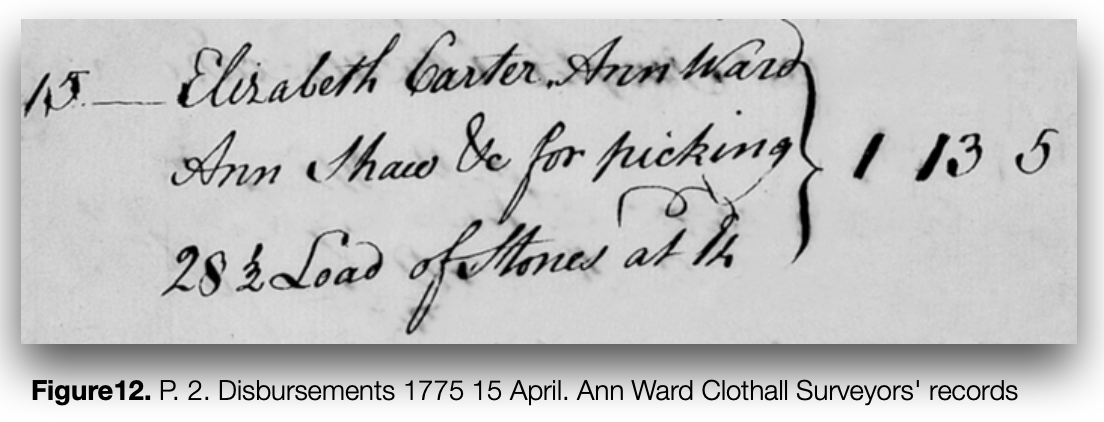 15 — Elizabeth Carter, Ann Ward
Ann Shaw &c for picking } 1 13 5
28 ½ Load of Stones at
Figure12. P. 2. Disbursements 1775 15 April. Ann Ward Clothall Surveyors' records